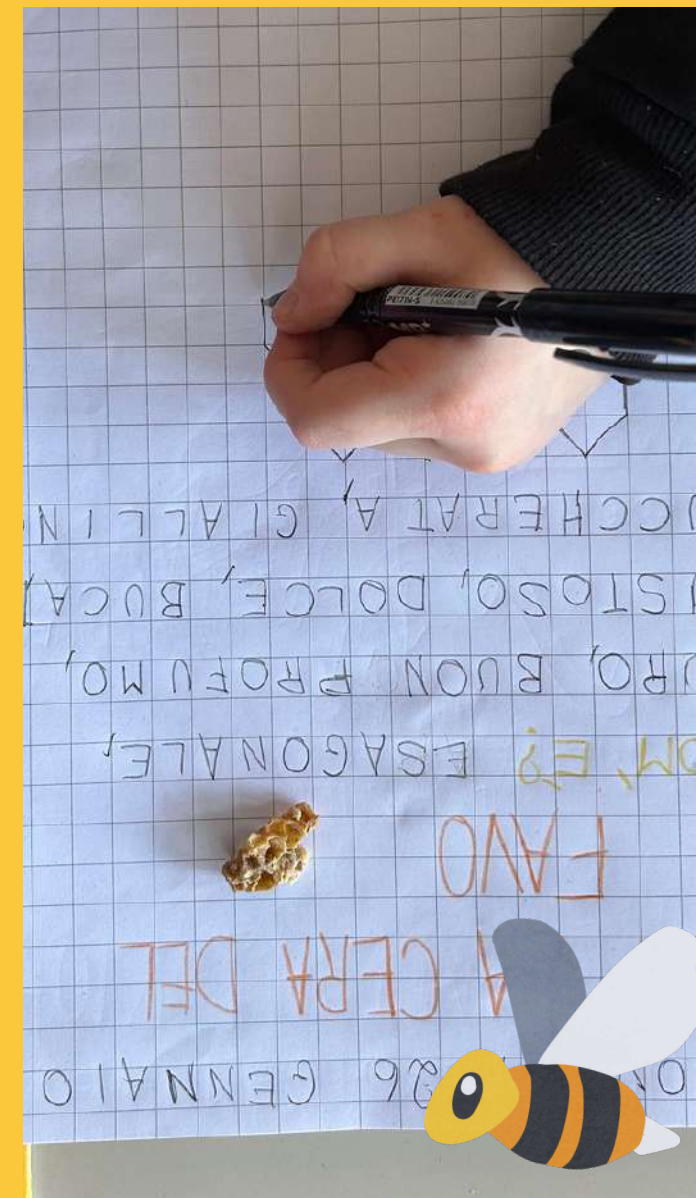 26 GENNAIO
A CERA DEL
FAVO
OM'È? ESAGONALE,
URO, BUON PROFUMO,
STOSO, DOLCE, BUCA
CCHERATA, GIALLIN